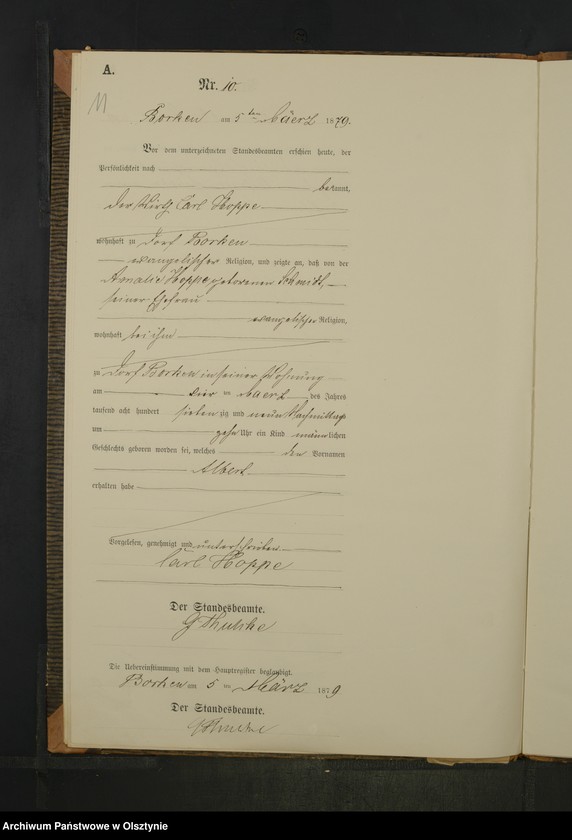 A.
Nr. 10.
11
Borken am 5ten Maerz 1879.
Vor dem unterzeichneten Standesbeamten erschien heute, der
Persönlichkeit nach
bekannt,
der Wirth Carl Hoppe
wohnhaft zu Dorf Borken
evangelischer Religion, und zeigte an, daß von der
Amalie Hoppe geborenen Schmidt,
seiner Ehefrau
evangelischer Religion,
wohnhaft bei ihm
zu Dorf Borken in seiner Wohnung
am vier ten Maerz des Jahres
tausend acht hundert siebenzig und neun Nachmittags
um zehn Uhr ein Kind männlichen
Geschlechts geboren worden sei, welches den Vornamen
Albert
erhalten habe
Vorgelesen, genehmigt und unterschrieben
Carl Hoppe
Der Standesbeamte.
Die Uebereinstimmung mit dem Hauptregister beglaubigt.
Borken am 5 ten März 1879
Der Standesbeamte.
Archiwum Państwowe w Olsztynie